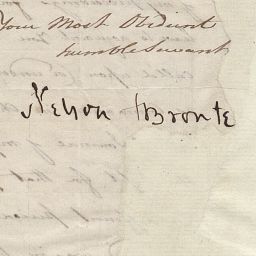 Your Most Obedient
humble Servant
Nelson Bronte